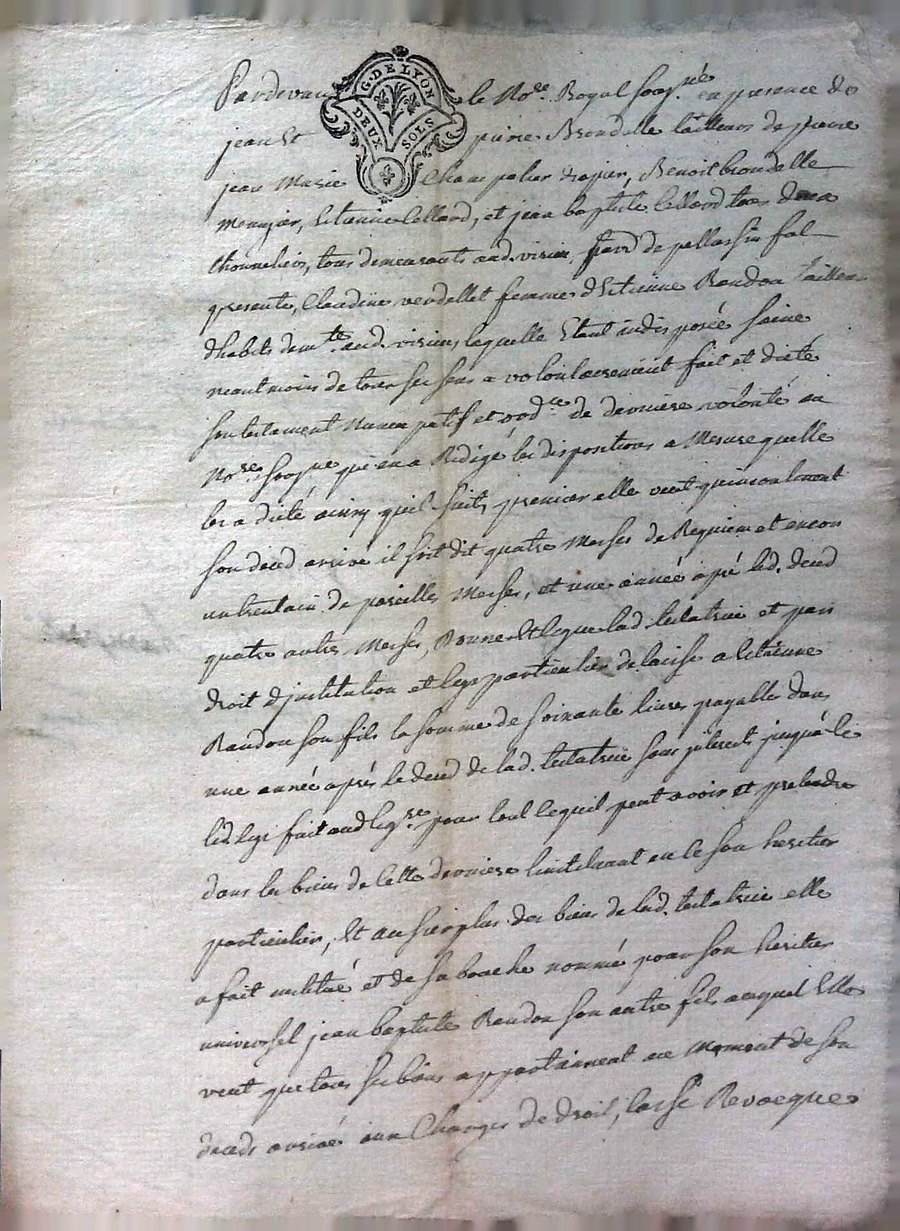 Pardevant le No.re Royal sousg.né en presence de
G. DE LYON
DEUX SOLS
jean et pierre Brondelle tailleurs de pierre
jean Marie Champalier drapier, Benoit brondelle
menuzier, Estienne Collard, et jean baptiste Collard tous deux
thonneliers, tous demeurants aud. virieu, de pellussin fut
presente, Claudine verdellet femme d'Estienne Randon tailleur
dhabits dem.te aud. virieu laquelle Etant indisposée saine
neantmoins de tous ses sens a volontairement fait et dicté
son testament Nuncupatif et ord.ce de derniere volonté au
No.re sousg.né qui en a Redigé les dispositions a Mesure quelle
les a dicté ainsy quil suit, premier elle veut quincontinent
son deced arrivé il soit dit quatre Messes de Requiem et encor
un trentain de pareilles Messes, et une année apré led. deced
quatre autres Messes, Donne et legue lad. testatrice et par
droit d'institution et legs particulier delaisse a Estienne
Randon son fils la somme de soixante livres payables dans
une année aprés le deced de lad. testatrice sans jnterest jusqu'à ce
led. legs fait aud. leg.re pour tout ce quil peut avoir et pretendre
dans les biens de cette derniere linstituant en ce son heritier
particulier, Et au surplus des biens de lad. testatrice elle
a fait institué et de sa bouche nommé pour son heritier
universel jean baptiste Randon son autre fils auquel Elle
veut que tous ses biens appartiennent au Moment de son
deceds arrivé aux Charges de droit, Revoque